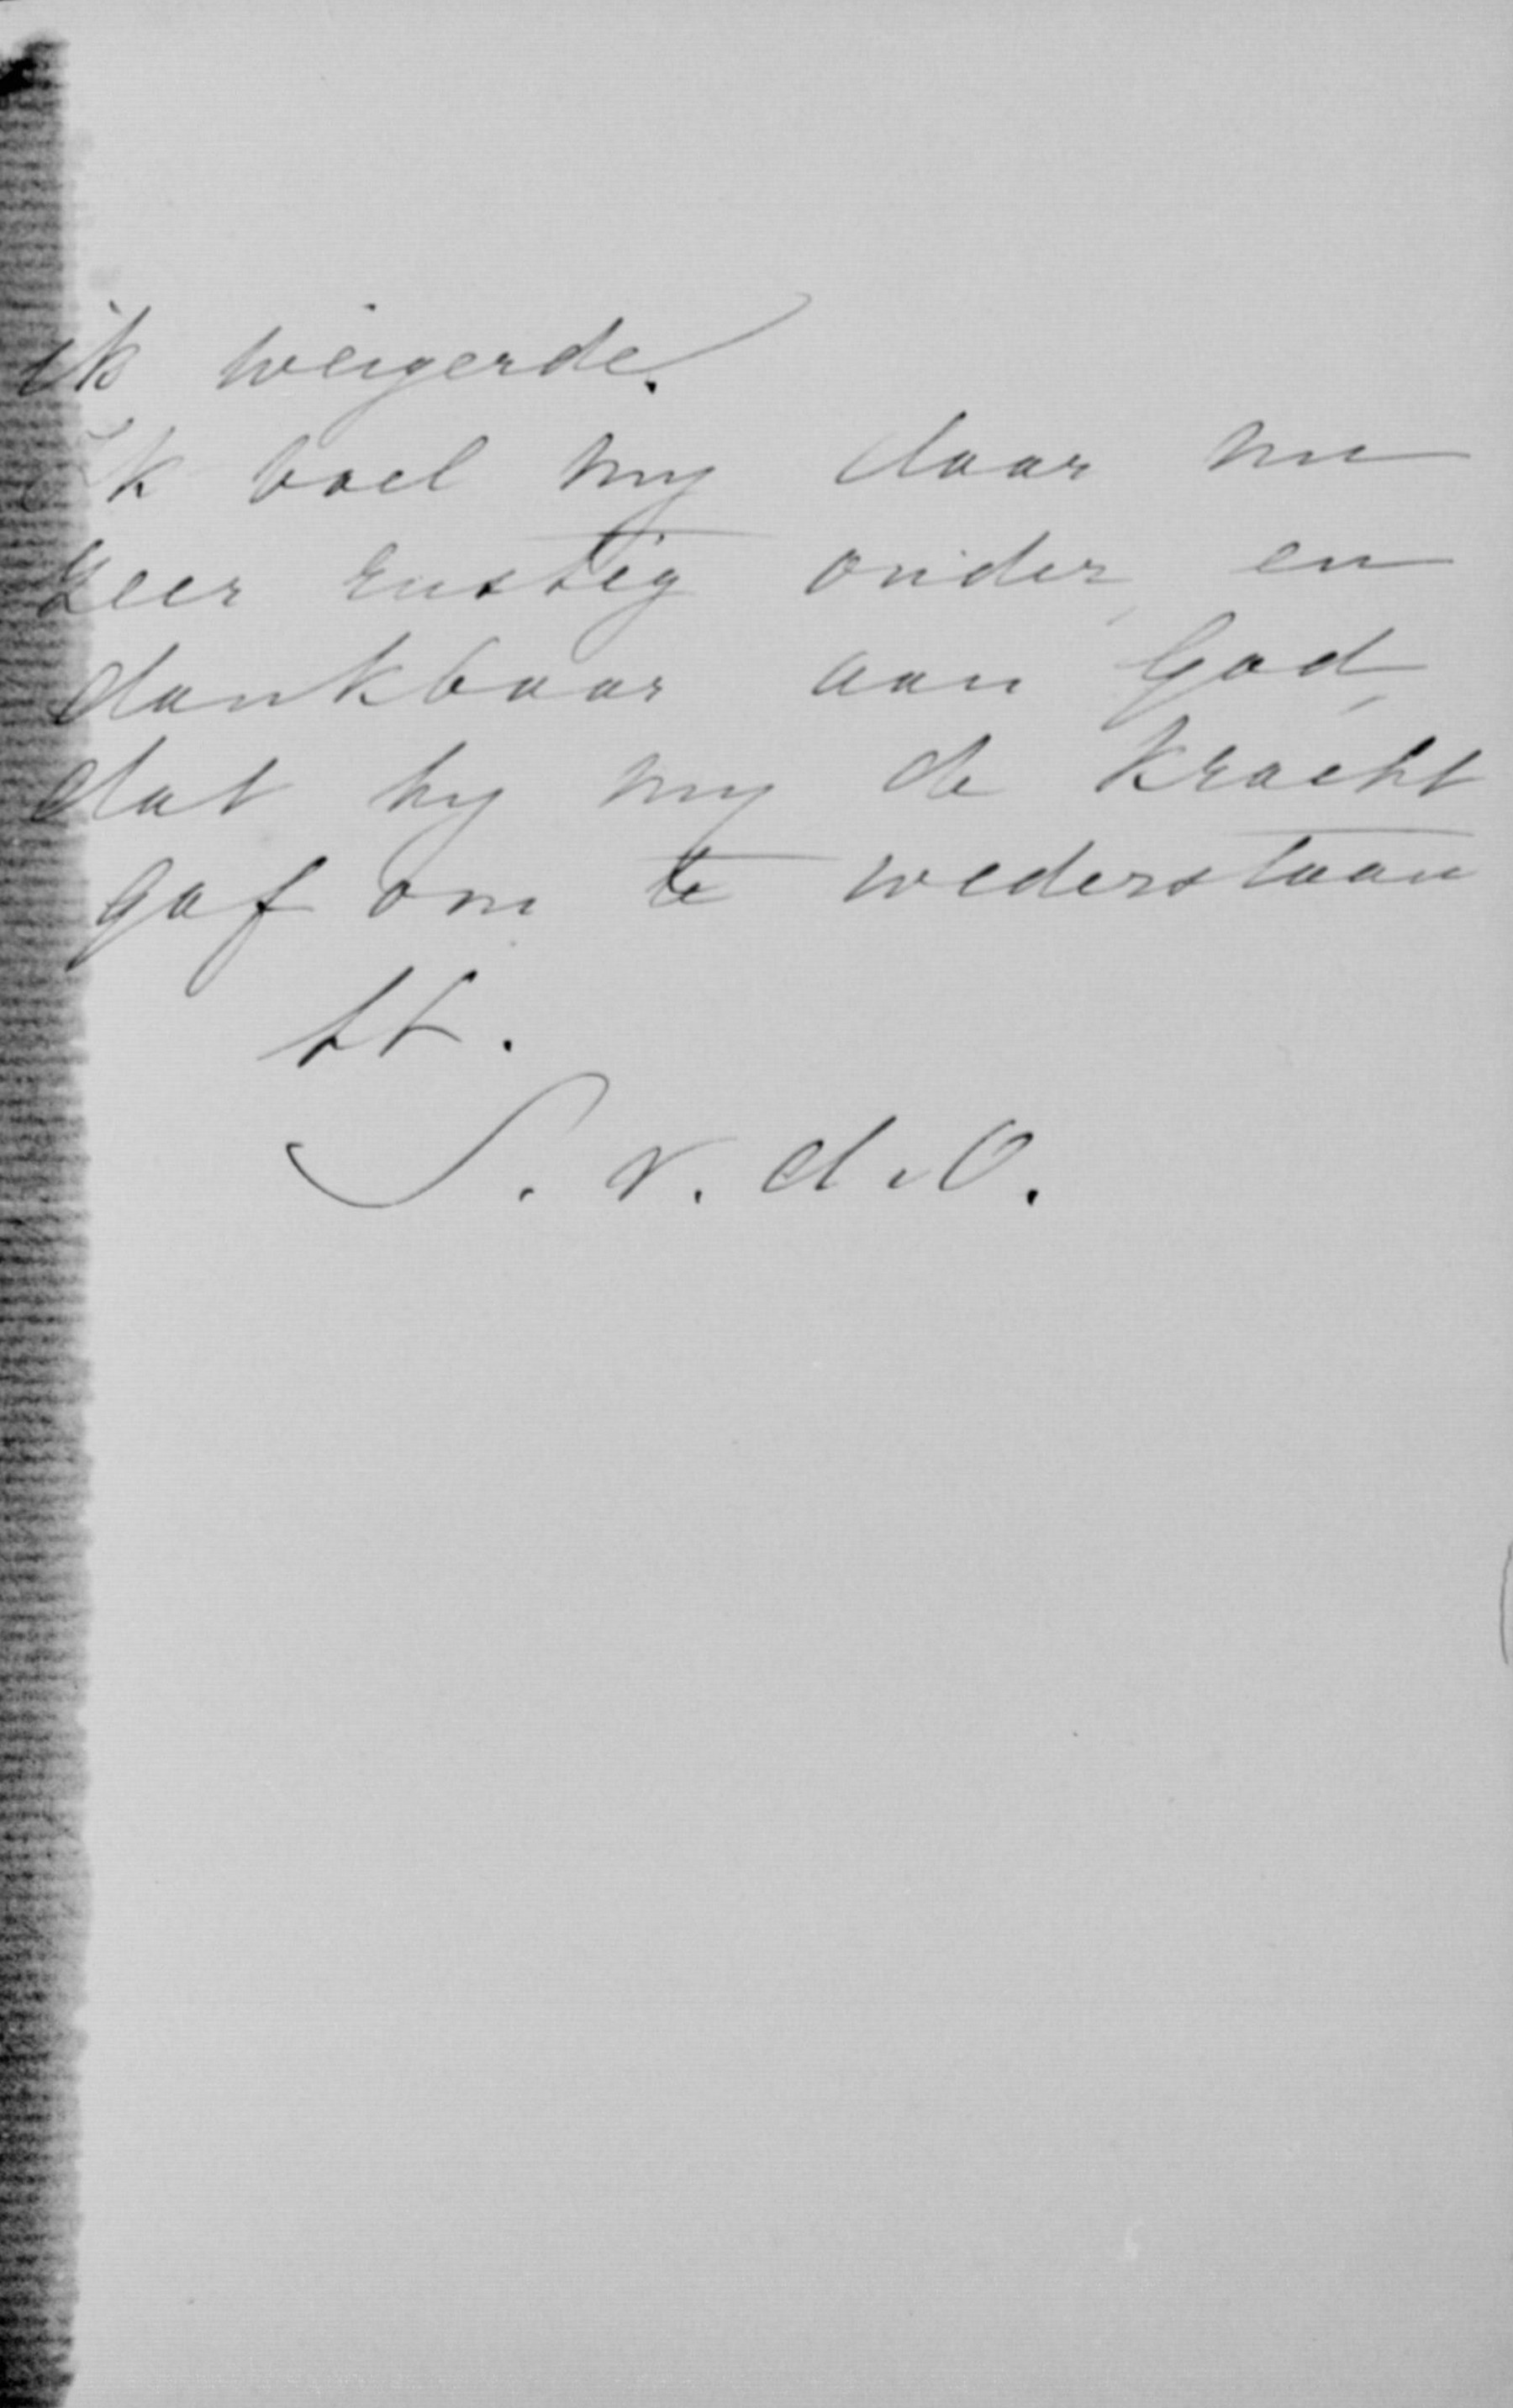 ik weigerde.
Ik voel my daar nu
zeer rustig onder, en
dankbaar aan God,
dat hy my de kracht
gaf om te wederstaan
tt.
S. v. d. O.